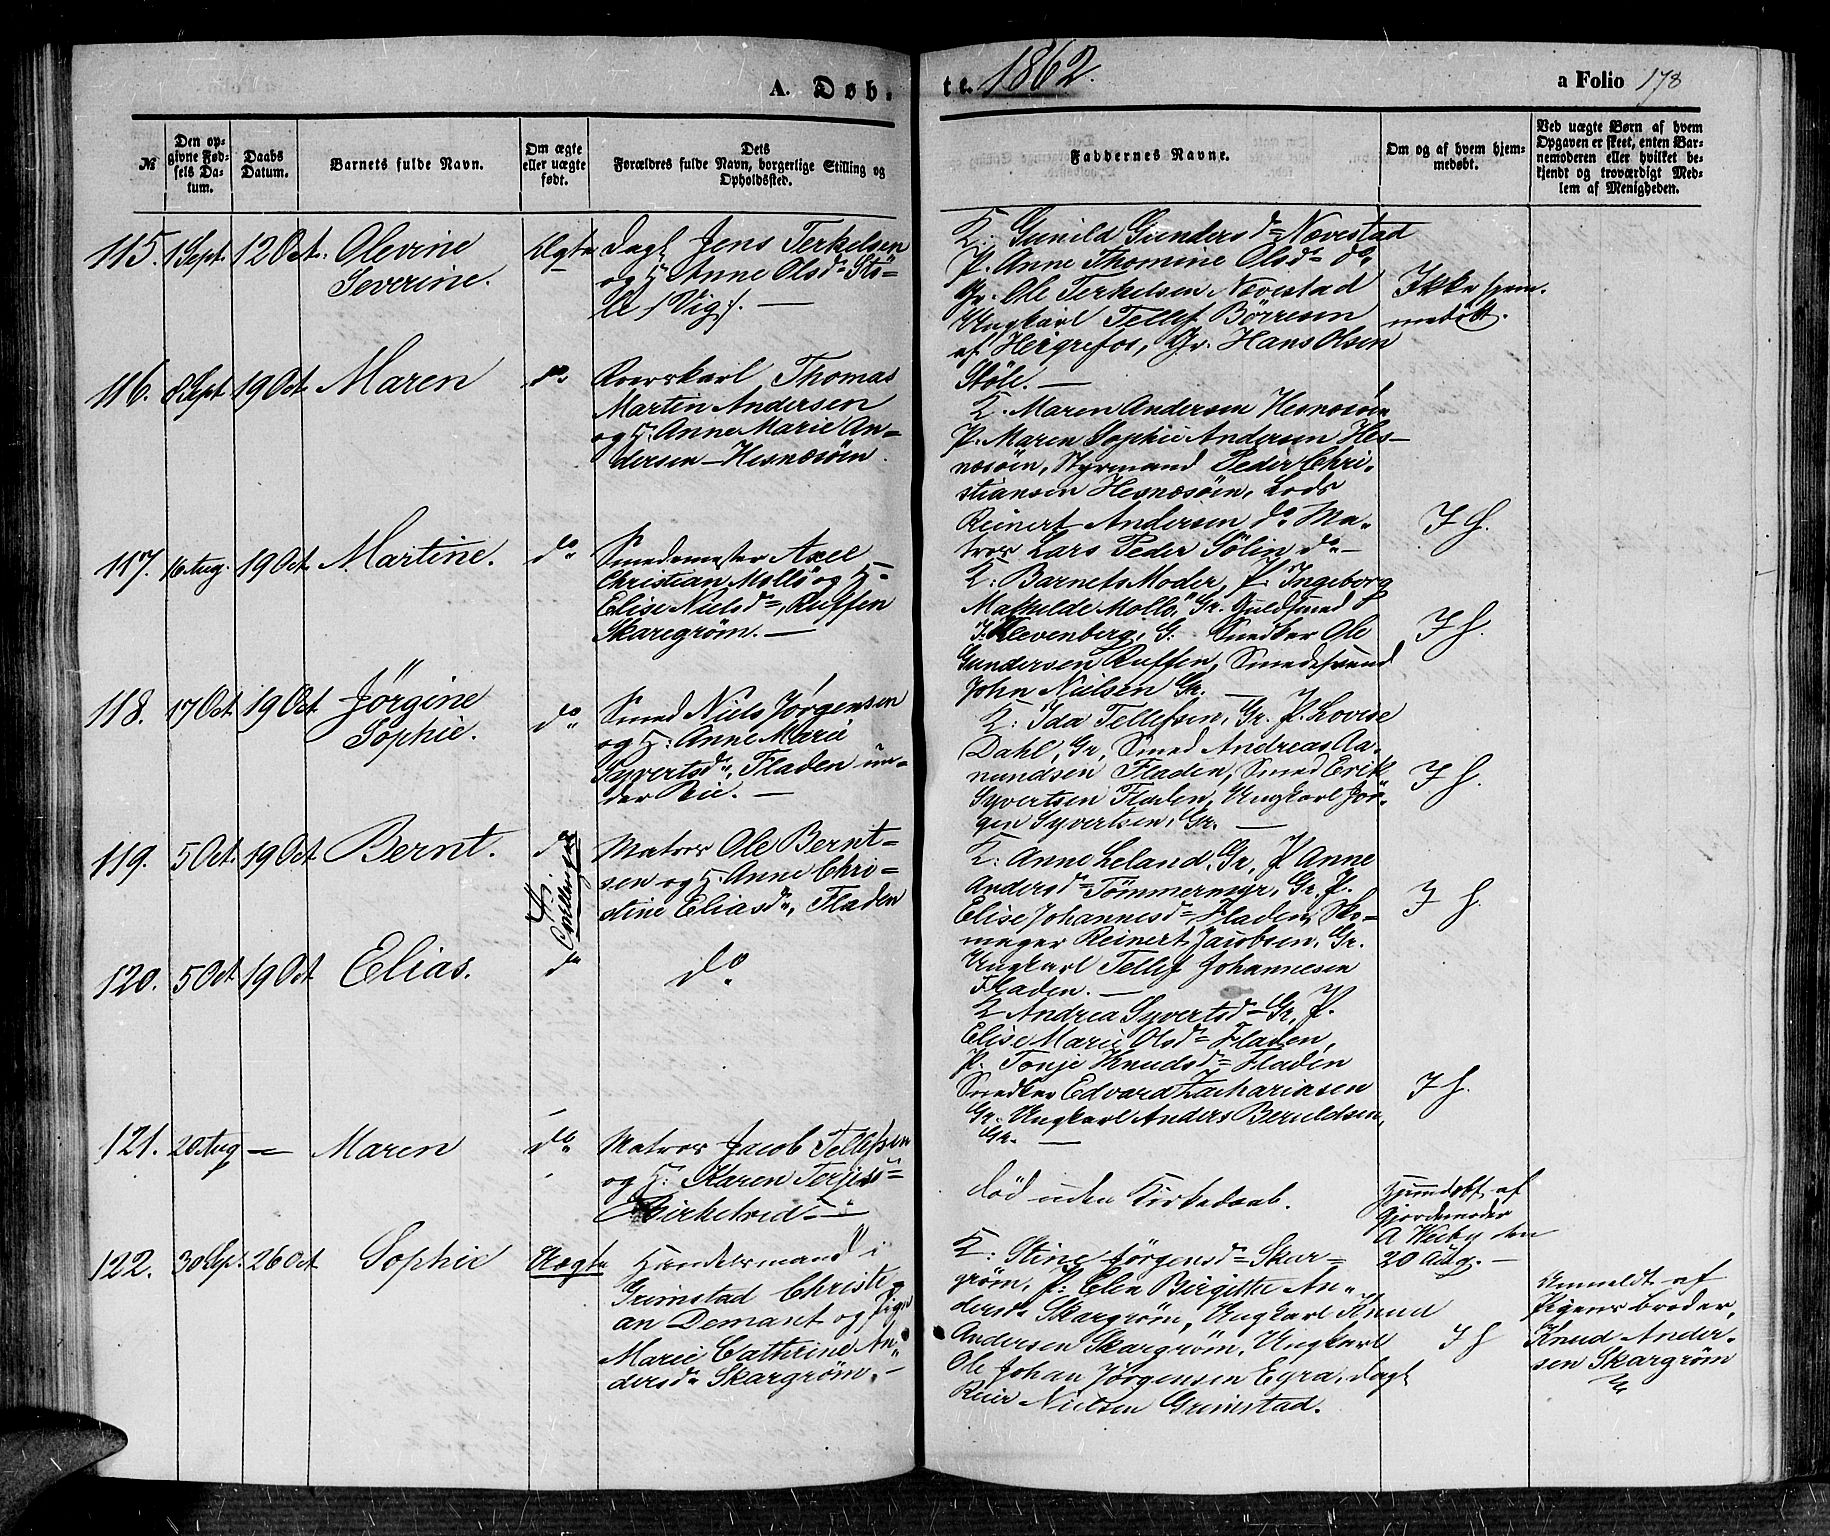 A. Døb- te. 1862. a Folio 178
№
Den op-
givne Fød-
sels Da-
tum.
Daabs
Datum.
Barnets fulde Navn.
Om ægte
eller uægte
født.
Dets
Forældres fulde Navn, borgerlige Stilling og
Opholdssted.
Faddernes Navne.
Om og af hvem hjem-
medøbt.
Ved uægte Børn af hvem
Opgaven er skeet, enten Bar-
nemoderen eller hvilket be-
kjendt og troværdigt Med-
lem af Menigheden.
115. 1 Sept. 12 Oct. Olevine
Severine.
Ægte
Dagl. Jens Terkelsen
og H. Anne Olsd. Stö-
le /Vig/. —
K: Gunild Gundersd. Nævestad
P. Anne Thomine Olsd. do
Gr. Ole Terkelsen Nævestad
Ungkarl Tellef Börresen
af Heigrefos, Gr. Hans Olsen
Støle. —
Ikke hjem-
medøbt.
116. 8 Sept 19 Oct Maren
do
Thomas
Martin Andersen
og H. Anne Marie An-
dersen — Hesnæsöen.
K. Maren Andersen Hesnæsöen
P. Maren Sophie Andersen Hes-
næsöen, Styrmand Peder Chri-
stiansen Hesnæsöen, Lods
Reinert Andersen do Ma-
tros Lars Peder Sölin do —
I H.
117. 16 Aug. 19 Oct. Martine.
do
Smedemester Axel
Christian Mollö og H.
Elise Nielsd., Ruffen
Skaregrøm. —
K: Barnets Moder, P. Ingeborg
Mathilde Mollö, Gr. Guldsmed
J. Klevenberg, G. Snedker Ole
Gundersen Ruffen, Smedesvend
John Nielsen Gr. —
I H.
118. 17 Oct. 19 Oct. Jørgine
Sophie.
do
Smed Niels Jørgensen
og H. Anne Marie
Syvertsd., Fladen un-
der Bie. —
K: Ida Tellefsen, Gr. P. Lovise
Dahl, Gr., Smed Andreas Aa-
nundsen Fladen, Smed Erik
Syvertsen Fladen, Ungkarl Jør-
gen Syvertsen, Gr. —
I H.
119. 5 Oct. 19 Oct. Bernt.
do
Tvillinger
Matros Ole Bernt-
sen og H. Anne Chri-
stine Eliasd., Fladen
K: Anne Leland, Gr, P Anne
Andersd. Tömmermyr, Gr, P.
Elise Johannesd. Fladen, Sko-
mager Reinert Jacobsen, Gr.
Ungkarl Tellef Johannesen
Fladen. —
I H.
120. 5 Oct 19 Oct Elias.
do
do
K Andrea Syvertsd. Gr, P.
Elise Marie Olsd. Fladen,
P. Tonje Knudsd. Fladen
Snedker Edvard Zachariasen
Gr. Ungkarl Anders Beruldsen,
Gr. —
I H.
121. 20 Aug — Maren
do
Matros Jacob Tellefsen
og H. Karen Terjesd.
Birketvedt —
død uden Kirkedaab.
Hjemdøbt af
Gjordemoder
A den
20 Aug. —
122. 30 Sep. 26 Oct. Sophie
Uægte
Handelsmand i
Grimstad Christi-
an Demant og Pige
Marie Cathrine An-
dersd. Skargrøm. —
K: Stine Jørgensd. Skar-
grøm, P. Elen Birgitte An-
dersd. Skargrøm, Ungkarl Knud
Andersen Skargrøm, Ungkarl
Ole Johan Jörgensen Egra, Dagl
Reier Nielsen Grimstad.
I H
Anmeldt af
Pigens broder,
Knud Ander-
sen Skargrøm